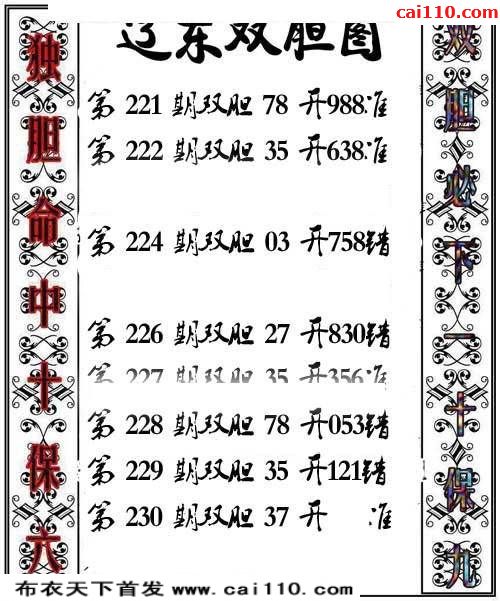 cai110.com
辽东双胆图
独胆命中十保六
第 221 期双胆 78 开988准
第 222 期双胆 35 开638准
第 224 期双胆 03 开758错
第 226 期双胆 27 开830错
第 227 期双胆 35 开356准
第 228 期双胆 78 开053错
第 229 期双胆 35 开121错
第 230 期双胆 37 开 准
双胆必下一十保九
布衣天下首发 www.cai110.com